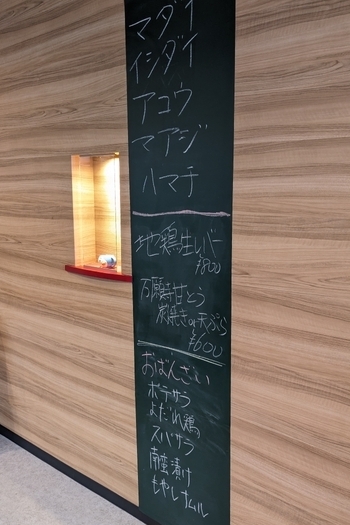 マダイ
イシダイ
アコウ
マアジ
ハマチ
地鶏生レバー
¥800
万願寺甘とう
炭焼きor天ぷら
¥600
おばんざい
ポテサラ
よだれ鶏の
スパサラ
南蛮漬け
もやしナムル